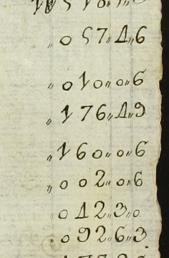 „ 0 57„ 4„ 6
„ 0 10„ 0„ 6
„ 1 76„ 4„ 9
„ 1 60„ 0„ 6
„ 0 02„ 0„ 6
0 42„ 3„ 0
0 92„ 6„ 3